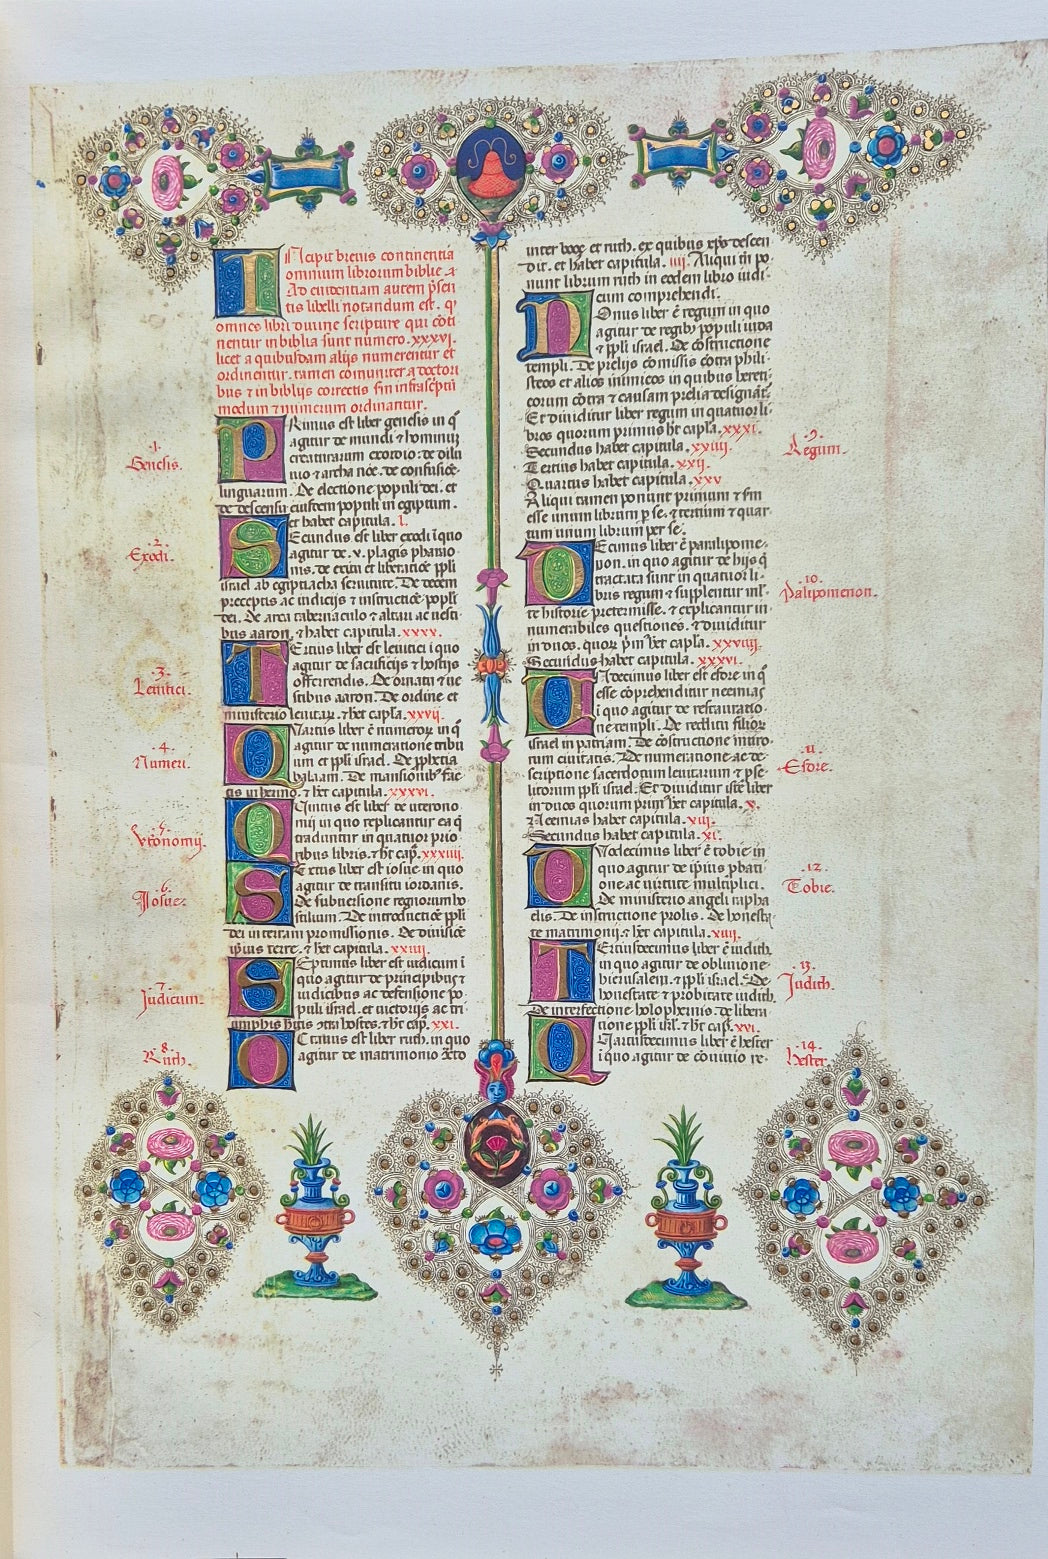 Incipit breuis continentia
omnium librorum biblie. &
Ad euidentiam autem p̄sen
tis libelli notandum est. q'
omnes libri diuine scripture qui cōti
nentur in biblia sunt numero. xxxvi.
licet a quibusdam alijs numerentur et
ordinentur. tamen comuniter a doctori
bus ⁊ in biblijs correctis fm infrascp̄tū
modum ⁊ numerum ordinantur.
.1.
Genesis.
PRimus est liber genesis in q̄
agitur de mundi ⁊ hominuȝ
creaturarum exordio. de dilu
uio ⁊ archa noe. de confusiōe
linguarum. De electione populi dei. et
de descensu eiusdem populi in egiptum.
et habet capitula. l.
.2.
Exodi.
SEcundus est liber exodi ī quo
agitur de. x. plagis pharao
nis. de exitu et liberatiōe pp̄li
israel ab egiptiacha seruitute. De decem
preceptis ac iudicijs ⁊ instructiōe popl̄i
dei. De arca tabernaculo ⁊ altari ac uesti
bus aaron. ⁊ habet capitula. xxxx.
.3.
Leuitici.
TErtius liber est leuitici ī quo
agitur de sacrificijs ⁊ hostijs
offerendis. De ornatu ⁊ ue
stibus aaron. De ordine et
ministerio leuitaꝝ. ⁊ h̄et capl̄a. xxvij.
.4.
Numeri.
QVartus liber ē numeroꝝ in q̄
agitur de numeratione tribu
um et pp̄li israel. De
balaam. De mansionibȝ fac
tis in heremo. ⁊ h̄et capitula. xxxvi.
.5.
Vtronomij.
QVintus est liber de uterono
mij in quo replicantur ea q̄
traduntur in quatuor prio
ribus libris. ⁊ h̄t cap̄. xxxiiij.
.6.
Josue.
SExtus liber est iosue in quo
agitur de transitu iordanis.
De subuersione regiorum ho
stilium. De introductiōe pp̄li
dei in terram promissionis. De diuisiōe
ip̄ius terre. ⁊ h̄et capitula. xxiiij.
.7.
Judicum.
SEptimus liber est iudicum ī
quo agitur de principibus ⁊
iudicibus ac defensione po
puli israel. et uictorijs ac tri
umphis h̄itis ꝯtra hostes. ⁊ h̄t cap̄. xxi.
.8.
Ruth.
OCtauus est liber ruth. in quo
agitur de matrimonio ꝯt̄cto
inter booȝ et ruth. ex quibus xp̄s descen
dit. et habet capitula. iiij. Aliqui tn̄ po
nunt librum ruth in eodem libro iudi
cum comprehendi.
.9.
Regum.
NOnus liber ē regum in quo
agitur de regibȝ populi iuda
⁊ pp̄li israel. De cōstructione
templi. De prelijs comissis cōtra phili
steos et alios inimicos in quibus hereti
corum cōtra ⁊ causam prelia designāt̄.
Et diuiditur liber regum in quatuor li
bros quorum primus h̄t capl̄a. xxxi.
Secundus habet capitula. xxiiij.
Tertius habet capitula. xxij.
Quartus habet capitula. xxv
Aliqui tamen ponunt primum ⁊ fm
esse unum librum p̄ se. ⁊ tertium ⁊ quar
tum unum librum per se.
.10.
Palipomenon.
DEcimus liber ē paralipome
non. in quo agitur de hijs q̄
tractata sunt in quatuor li
bris regum ⁊ supplentur ml̄
te historie pretermisse. ⁊ explicantur in
numerabiles questiones. ⁊ diuiditur
in duos. quoꝝ p̄im' h̄et capl̄a. xxviiij.
Secundus habet capitula. xxxvi.
.11.
Esdre.
UNdecimus liber est esdre in q̄
esse cōprehenditur neemias
ī quo agitur de restauratio
ne templi. De reditu filioꝝ
israel in patriam. De cōstructione muro
rum ciuitatis. De numeratione ac de
scriptione sacerdotum leuitarum ⁊ p̄se
litorum pp̄li israel. Et diuiditur iste liber
in duos quorum prim' h̄et capitula. x.
Neemias habet capitula. xiij.
Secundus habet capitula. xi.
.12.
Tobie.
DVodecimus liber ē tobie in
quo agitur de ip̄ius p̄bati
one ac uirtute multiplici.
De ministerio angeli rapha
elis. De instructione prolis. De honesta
te matrimonij. ⁊ h̄et capitula. xiiij.
.13.
Judith.
TErtiusdecimus liber ē iudith.
in quo agitur de oblinione
hierusalem. ⁊ pp̄li israel. De
honestate ⁊ probitate iudith.
De interfectione holophernis. de libera
tione pp̄li isrl̄. ⁊ h̄t cap̄. xvi.
.14.
hester
QVartusdecimus liber ē hester
ī quo agitur de cōuiuio re